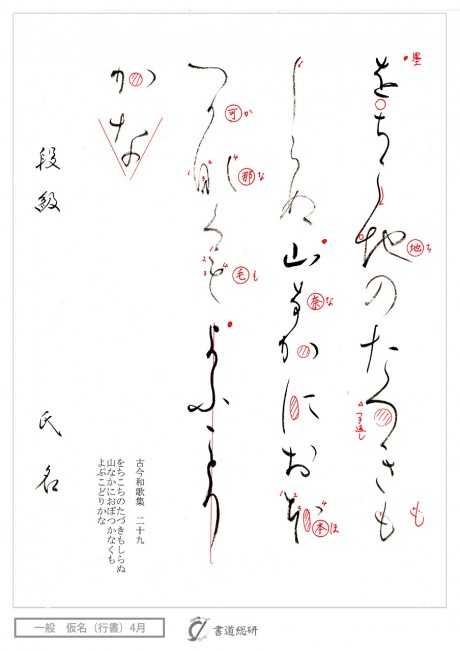 をちこ地のたつきも
墨
地ち
つき返し
も
しらぬ山奈かにお本
奈な
本ほ
つ可那く毛よふことり
可か
那な
毛も
かな
段級 氏名
古今和歌集 二十九
をちこちのたづきもしらぬ
山なかにおぼつかなくも
よぶこどりかな
一般 仮名（行書）4月
書道総研